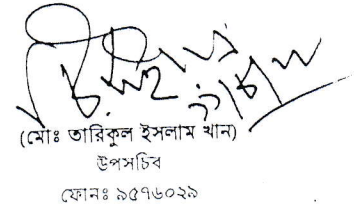 (মোঃ তারিকুল ইসলাম খান)
উপসচিব
ফোনঃ ৯৫৭৬০২৯